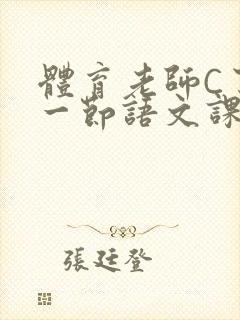 體育老師C
一節語文課
張廷登